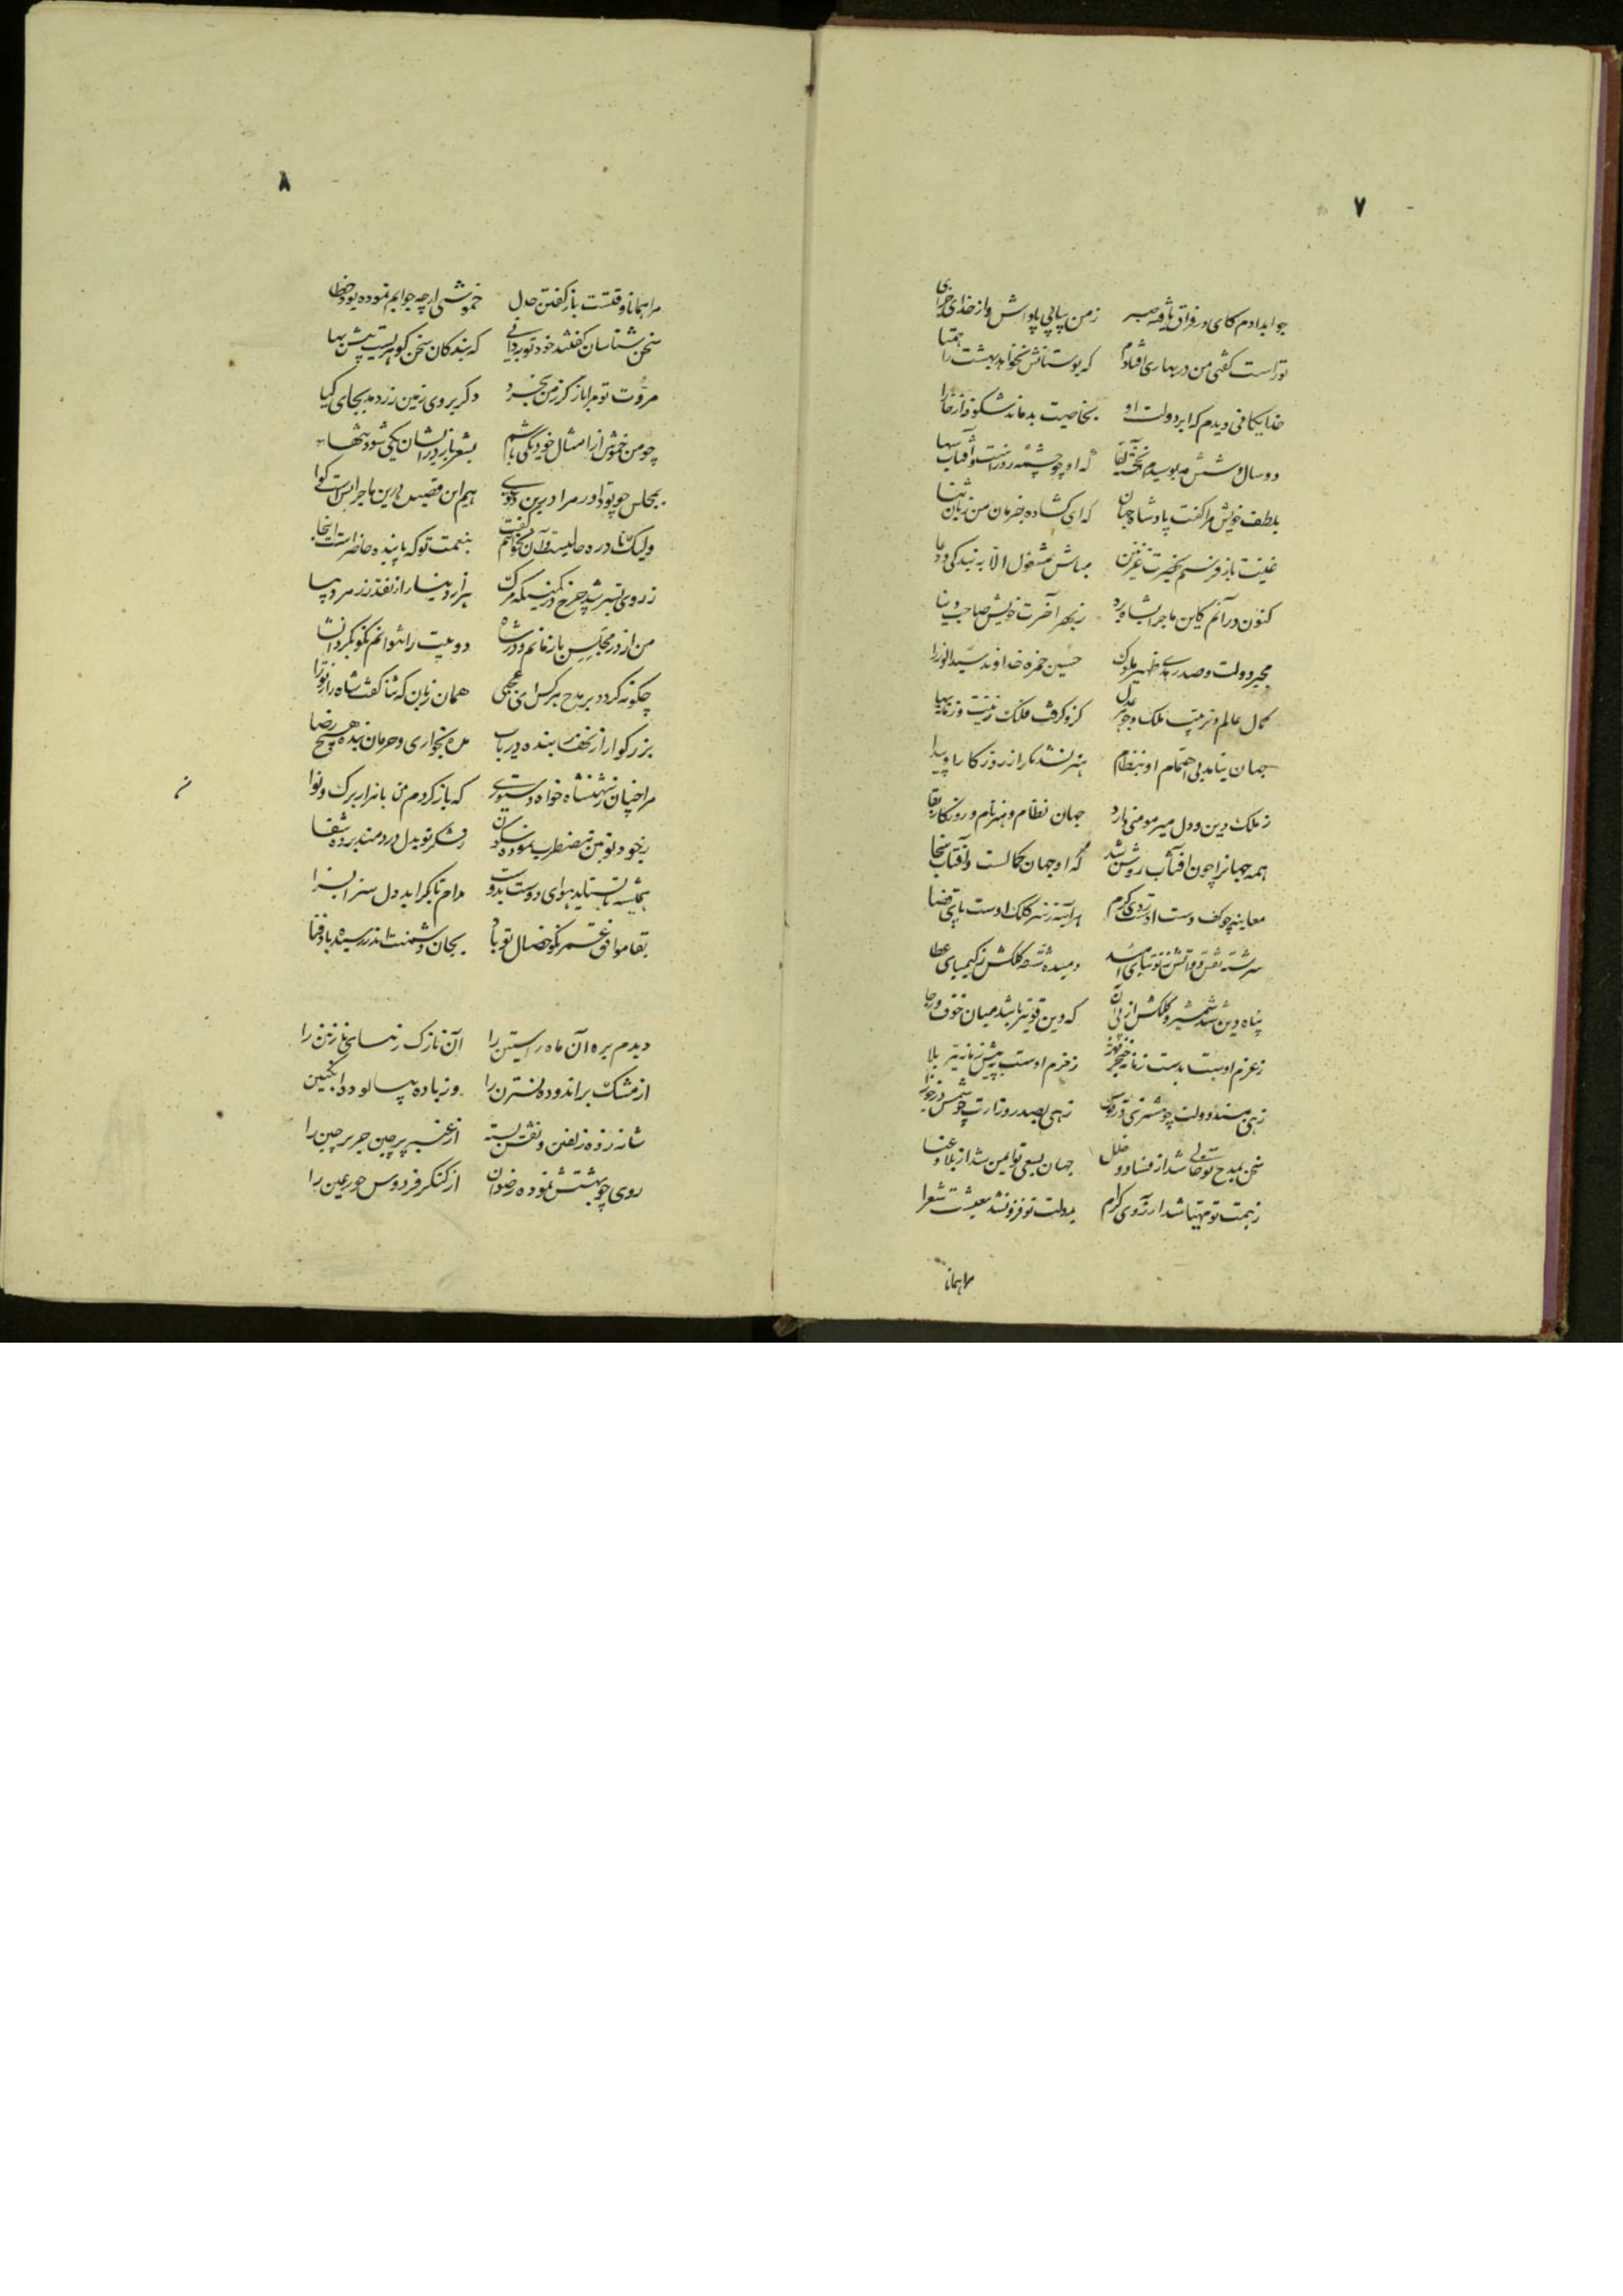 ۷
جوابدادم کای در فراق یافته صبر زمن بیابی پاداش و از خدای جزای
تو راست گفتی من در بهاری افتادم که بوستانش نخواهد بهشت را همتا
خدایگانی دیدم که ابر دولت او بخاصیت بدماند شکوفه از خارا
دو سال و شش مه بوسیدم آنخجسته لقا که او چو چشمه روز است و آفتاب
بلطف خویش مرا گفت پادشاه جهان که ای گشاده بفرمان من زبان ثنا
غنیت باز فرستم بحضرت غزنین مباش مشغول الا به بندگی و دعا
کنون در آنم کاین ماجرا بشاه برد زبهر آخرت خویش صاحب دنیا
مجیر دولت و صدر هدی ظهیر ملوک حسین حمزه خداوند سید الوزرا
کمال عالم و ترتیب ملک و جوهر عدل کزو گرفت فلک زینت و زمانه بها
جهان نیامد بی اهتمام او بنظام هنر نشد مگر از روزگار او پیدا
ز ملک دین و دل میر مومنی دارد جهان نظام و هنر نام و روزگار بقا
همه جهانرا چون آفتاب روشن شد که او جهان کمالست و آفتاب سخا
معاینه چو کف دست اوست روی کرم هرآینه ز سر کلک اوست پای قضا
سرشته نقش دواتش ز توتیای امید دمیده نقطه کلکش ز کیمیای عطا
پناه دین شد شمشیر و کلکش از پی آن که دین قویتر باشد میان خوف و رجا
ز عزم اوست بدست زمانه خنجر قهر ز حزم اوست به پیش زمانه تیر بلا
زهی بمسند دولت چو مشتری در قوس زهی بصدر وزارت چو شمس در جوزا
سخن بمدح تو خالی شد از فساد و خلل جهان بسعی تو ایمن شد از بلا و عنا
زهمت تو مهیا شد آرزوی کرام بدولت تو فزون شد معیشت شعرا
مرا همانا
۸
مرا همانا وقتست باز گفتن حال خموشی ارچه جوابم نموده بود خطا
سخن شناسان گفتند خود تو بردانی که بندگان سخن گو هریست بیش بها
مروت تو مرا باز گر زمن بخرد وگر بروی زمین زر دمد بجای گیا
چو من خموش از امثال خود یکی باشم بشعر باز در ایشان یکی شود تنها
بمجلس چو تو داور مرا درین دعوی هم این قصیده درین ماجرا بس است گوا
ولیک تا در ده حالیست و آن نخواهم گفت بنعمت تو که پاینده حاضر است اینجا
ز روی تیر شد چرخ در کمینگه مرگ هزار دینار از نقد زر مرد بها
من از در مجلس باز مانم و در شاه دو بیت را نتوانم نکو بکرد انشا
چگونه گردد بر مدح هر کس ای عجبی همان زبان که ثنا گفت شاه را ز نورا
بزرگوارا از لطف بنده دریاب مده بخواری و حرمان بنده هیچ رضا
مرا چنان ز شهنشاه خواه دستوری که باز گردم من با هزار برگ و نوا
بخود تو بمن مضطرب نموده سکون ز شکر تو بدل دردمند برده شفا
همیشه تا بستاید هوای دوست بدوست مدام تا بگراید دل سزا بسزا
بقا موافق عمر نکو خصال تو باد بجان دشمنت اندر رسیده باد فنا
دیدم بره آن ماه راستین را آن نازک رخسای نازنین را
از مشک براندوده نسترن را وز باده بپالوده انگبین
شانه زده زلفین و نقش بسته از عنبر پرچین حریر چین را
روی چو بهشتش نموده رضوان از کنگر فردوس حور عین را